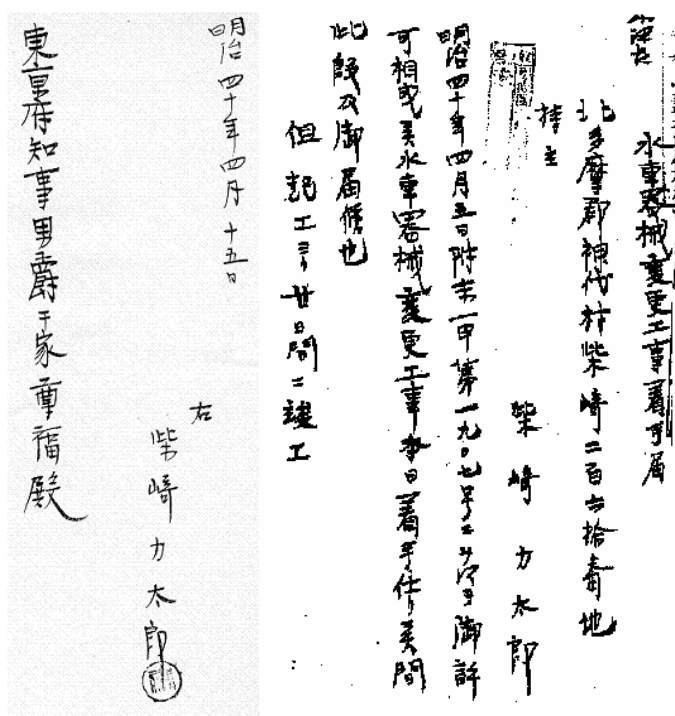 水車器械変更工事着手届
北多摩郡神代村柴崎二百六拾番地
持主
柴﨑力太郎
明治四十年四月五日附末一甲第一九〇七号ニ 御許
可相成 水車器械変更工事 本日着手仕候間
此段及御届候也
但起工ヨリ廿日間ニ竣工
明治四十年四月十五日
右
柴﨑力太郎
東京府知事男爵千家尊福殿